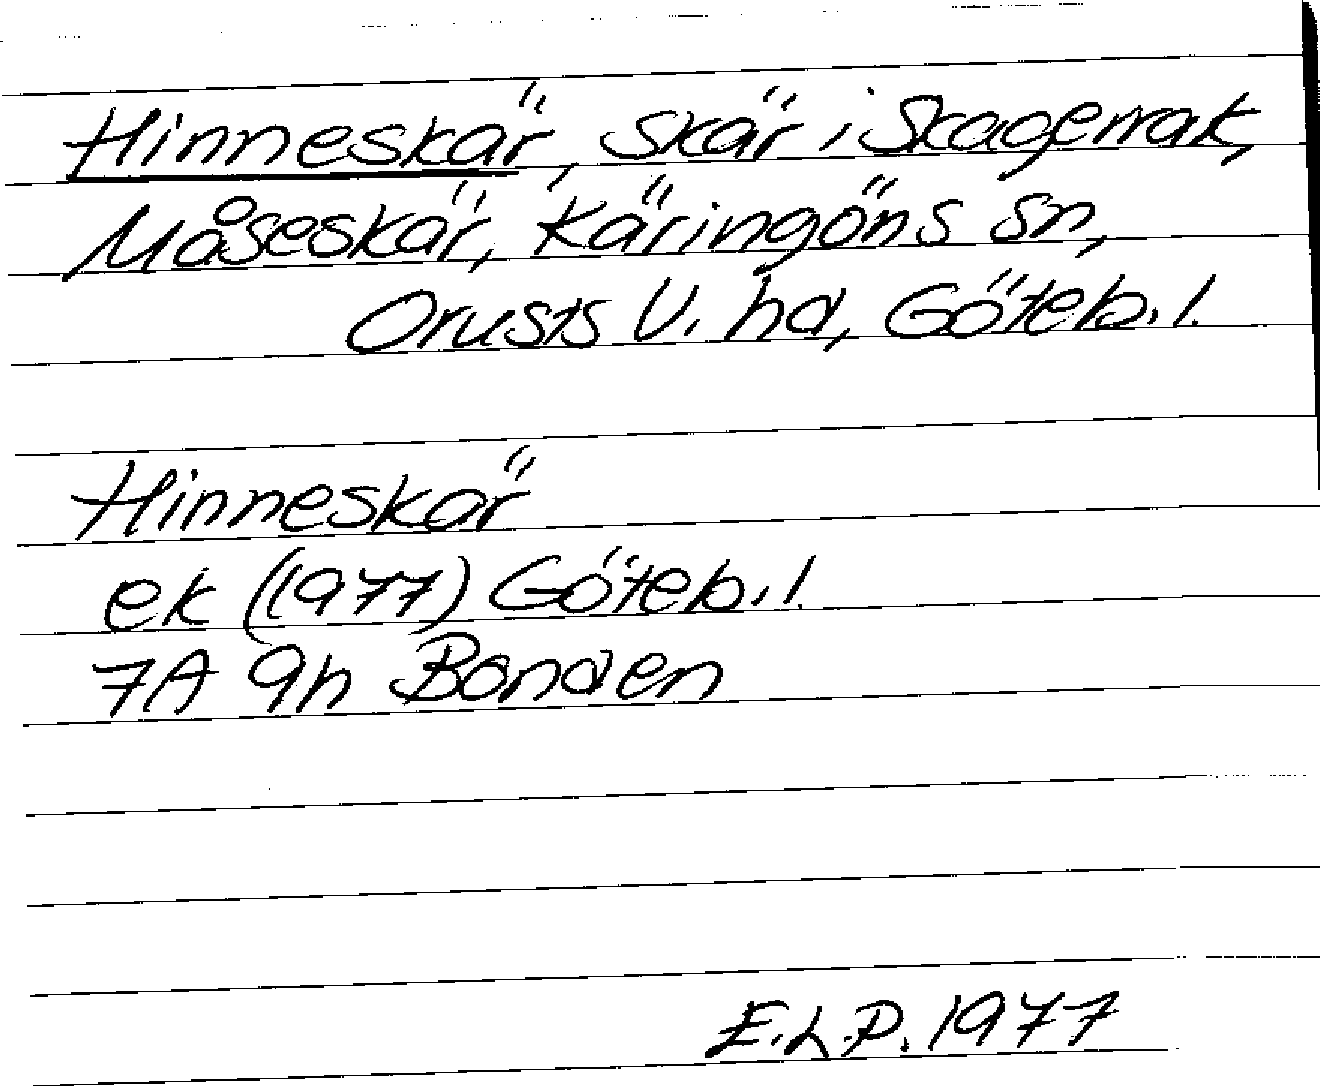 Hinneskär, skär i Skagerrak,
Måseskär, Käringöns sn,
Orusts V. hd, Göteb. l.
Hinneskär
ek (1977) Göteb. l.
7A 9h Bonden
E.L.P. 1977